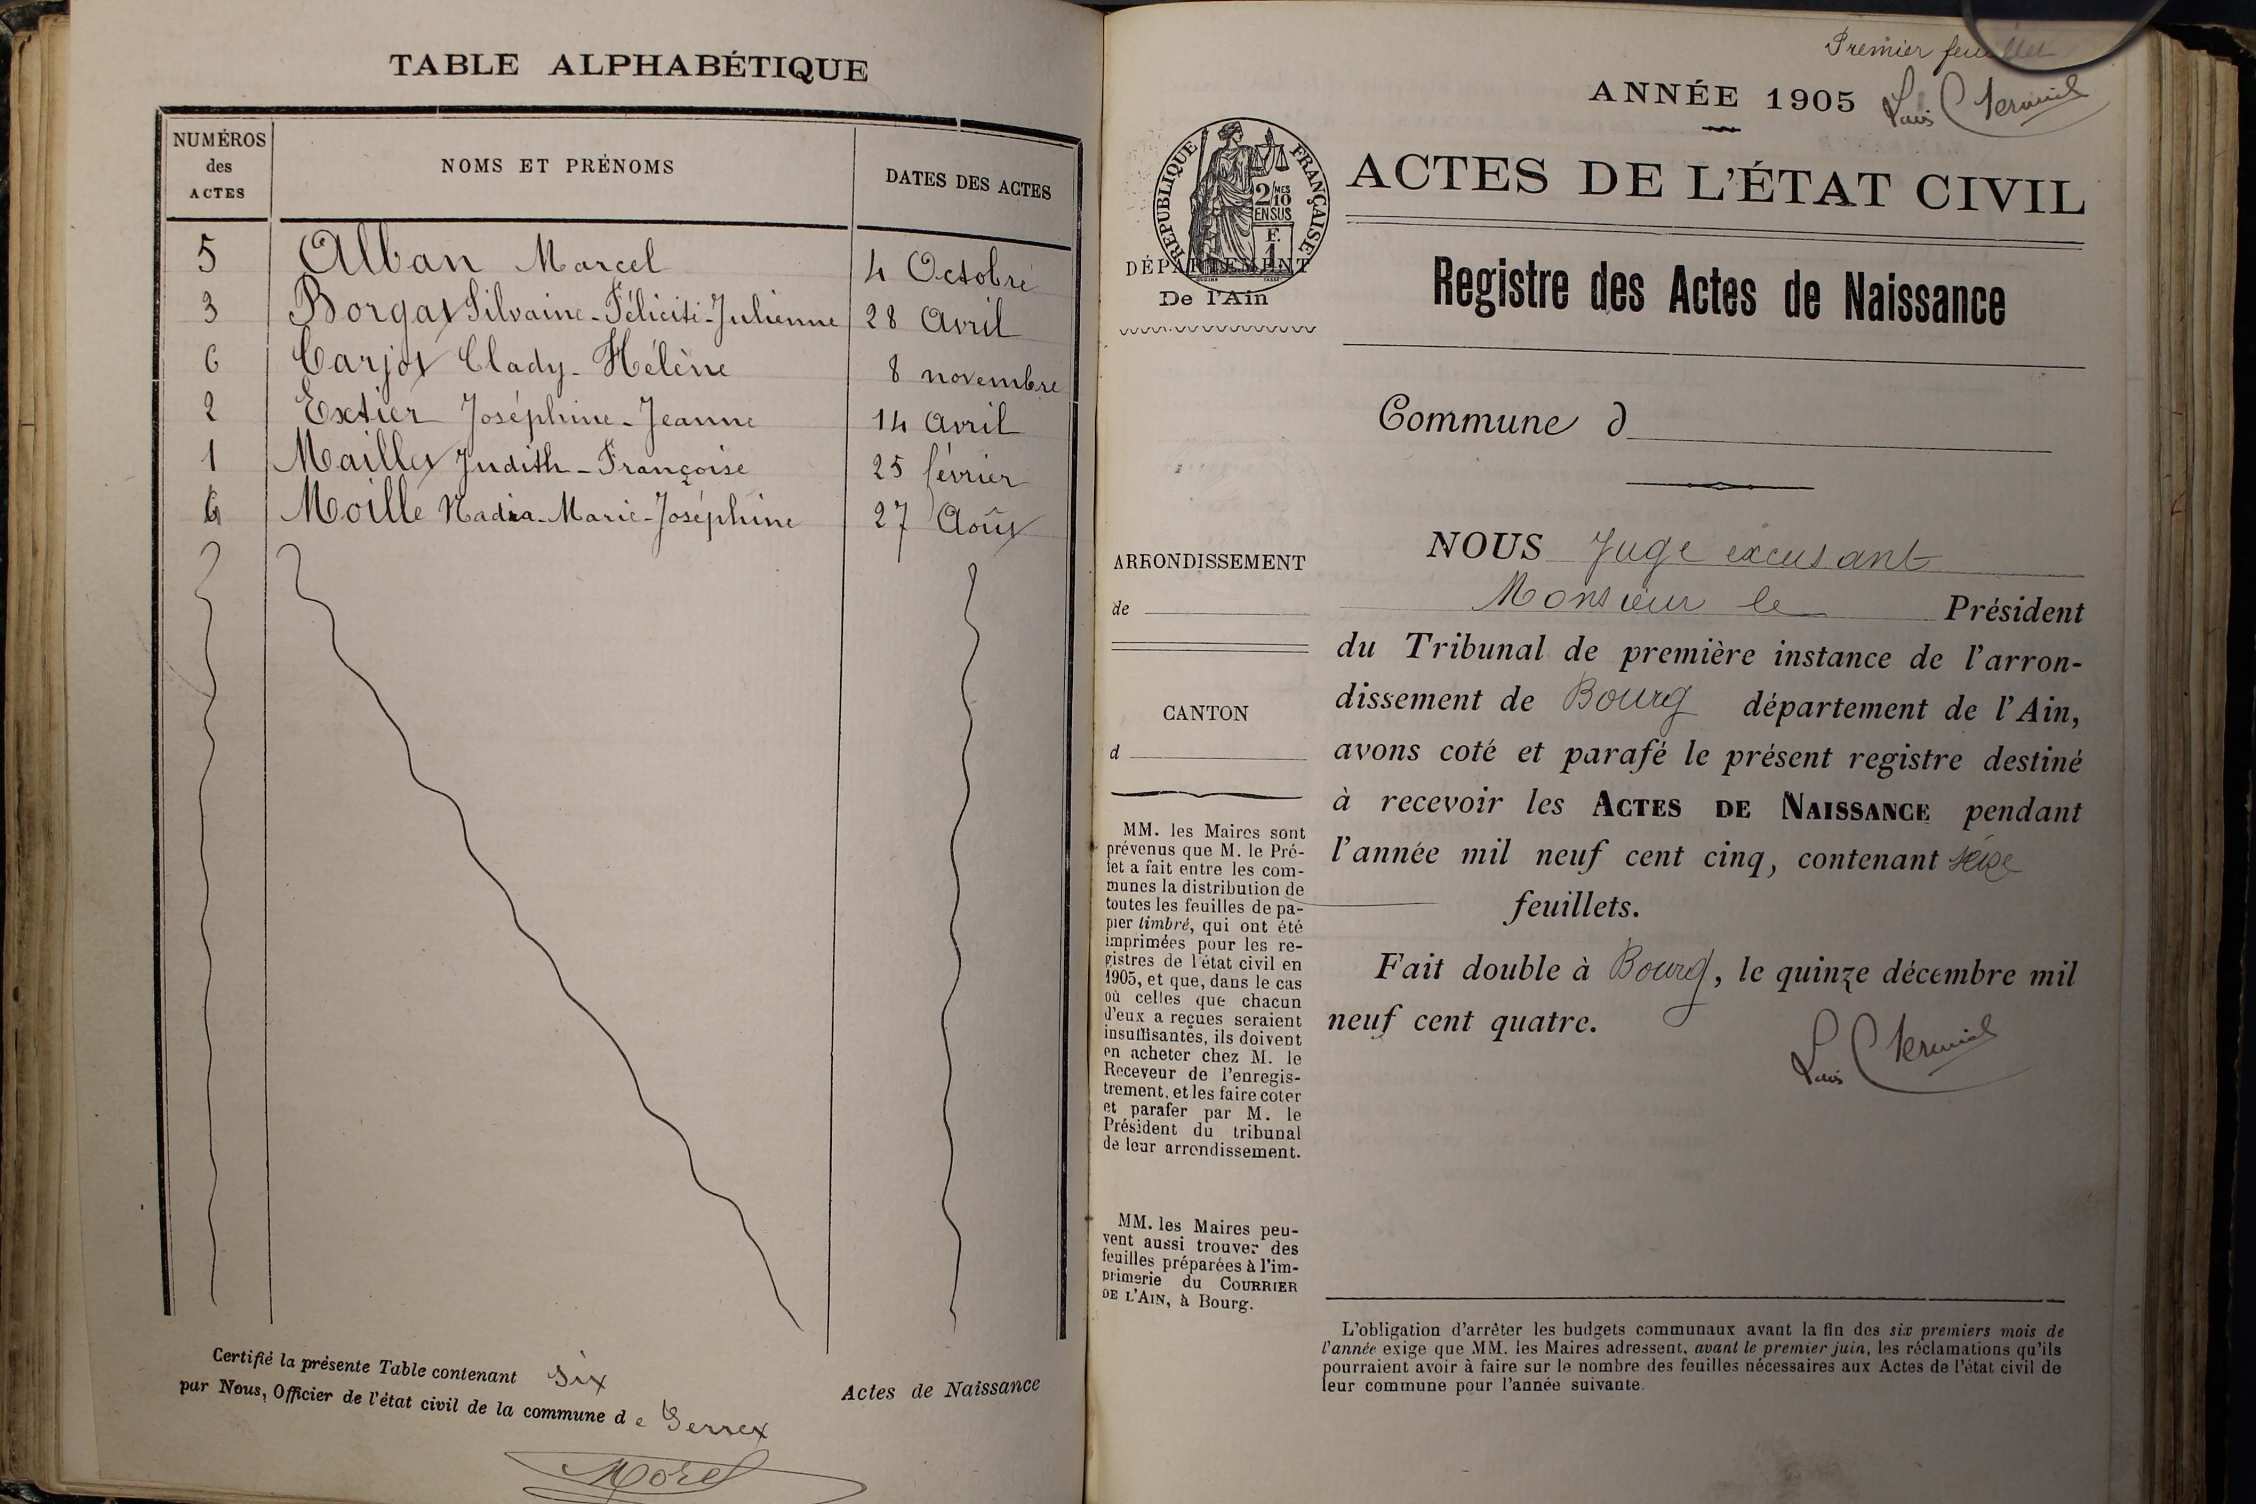 TABLE ALPHABÉTIQUE
NUMÉROS des ACTES
NOMS ET PRÉNOMS
DATES DES ACTES
5 Alban Marcel 4 Octobre
3 Borgat Silvaine-Félicité-Julienne 28 Avril
6 Carjot Clady-Hélène 8 novembre
2 Extier Joséphine-Jeanne 14 Avril
1 Maillet Judith-Françoise 25 février
4 Moille Nadia-Marie-Joséphine 27 Août
Certifié la présente Table contenant six Actes de Naissance
par Nous, Officier de l'état civil de la commune de Serrex
Morel
Premier feuillet
ANNÉE 1905
Louis
ACTES DE L'ÉTAT CIVIL
RÉPUBLIQUE FRANÇAISE
2/10 MES
EN SUS
F.
1
DÉPARTEMENT
De l'Ain
Registre des Actes de Naissance
Commune d
ARRONDISSEMENT
de
CANTON
d
MM. les Maires sont
prévenus que M. le Pré-
fet a fait entre les com-
munes la distribution de
toutes les feuilles de pa-
pier timbré, qui ont été
imprimées pour les re-
gistres de l'état civil en
1905, et que, dans le cas
où celles que chacun
d'eux a reçues seraient
insuffisantes, ils doivent
en acheter chez M. le
Receveur de l'enregis-
trement, et les faire coter
et parafer par M. le
Président du tribunal
de leur arrondissement.
MM. les Maires peu-
vent aussi trouver des
feuilles préparées à l'im-
primerie du COURRIER
DE L'AIN, à Bourg.
NOUS Juge excusant
Monsieur le Président
du Tribunal de première instance de l'arron-
dissement de Bourg département de l'Ain,
avons coté et parafé le présent registre destiné
à recevoir les ACTES DE NAISSANCE pendant
l'année mil neuf cent cinq, contenant seize
feuillets.
Fait double à Bourg, le quinze décembre mil
neuf cent quatre.
Louis
L'obligation d'arrêter les budgets communaux avant la fin des six premiers mois de
l'année exige que MM. les Maires adressent, avant le premier juin, les réclamations qu'ils
pourraient avoir à faire sur le nombre des feuilles nécessaires aux Actes de l'état civil de
leur commune pour l'année suivante.